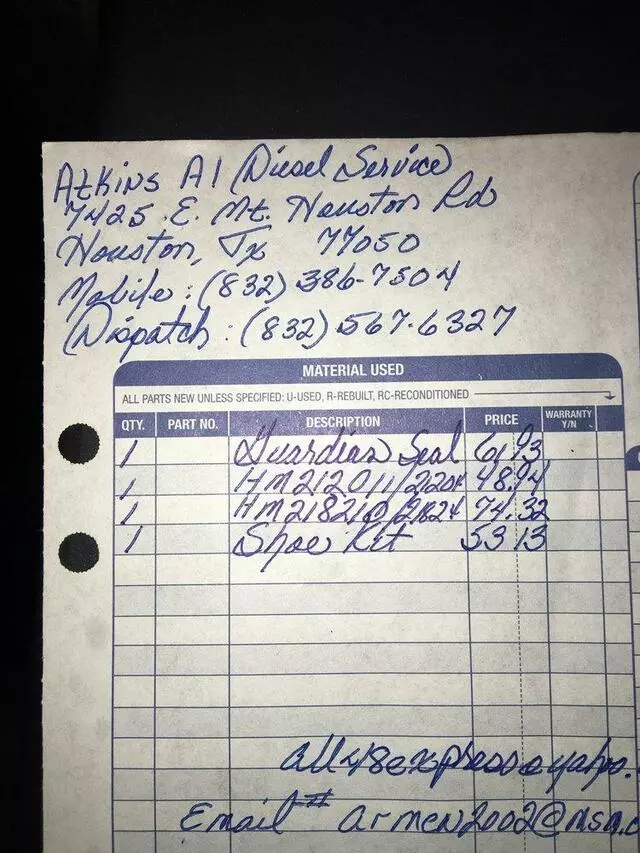 Atkins A1 Diesel Service
7425 E. Mt. Houston Rd
Houston, Tx 77050
Mobile: (832) 386-7504
Dispatch: (832) 567-6327
MATERIAL USED
ALL PARTS NEW UNLESS SPECIFIED: U-USED, R-REBUILT, RC-RECONDITIONED
QTY. PART NO. DESCRIPTION PRICE WARRANTY Y/N
1 Guardian Seal 61.93
1 HM212011/
1 HM218210/ 74.32
1 Shoe Kit 53 13
all48express@yahoo.
Email armen2002@msn.c